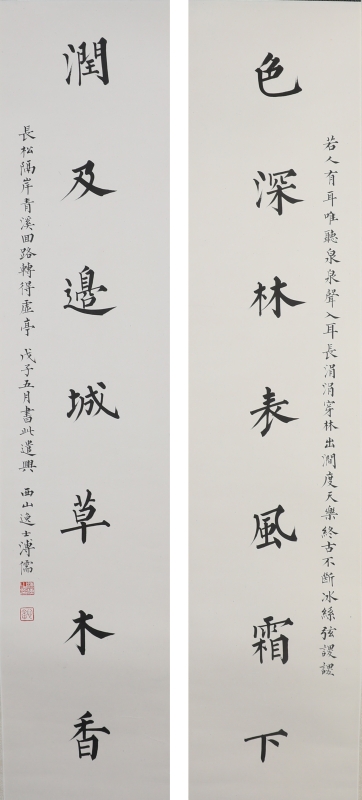 若人有耳唯聽泉泉聲入耳長涓涓穿林出澗度天樂終古不斷冰絲弦謖謖
色深林表風霜下
潤及邊城草木香
長松隔岸青溪回路轉得虛亭 戊子五月書此遣興 西山逸士溥儒